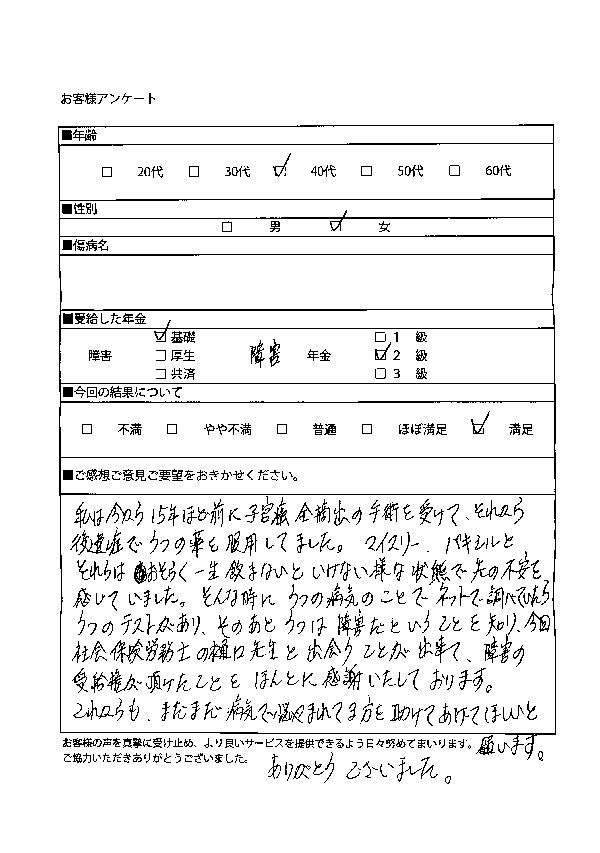 お客様アンケート
■年齢
□ 20代 □ 30代 ☑ 40代 □ 50代 □ 60代
■性別
□ 男 ☑ 女
■傷病名
■受給した年金
☑ 基礎 □ 1 級
障害 □ 厚生 障害 年金 ☑ 2 級
□ 共済 □ 3 級
■今回の結果について
□ 不満 □ やや不満 □ 普通 □ ほぼ満足 ☑ 満足
■ご感想ご意見ご要望をおきかせください。
私は今から15年ほど前に子宮癌全摘出の手術を受けて、それから
後遺症でうつの薬を服用してました。マイスリー、パキシルと
それらはおそらく一生飲まないといけない様な状態で先の不安を
感じていました。そんな時にうつの病気のことでネットで調べていたら
うつのテストがあり、そのあとうつは障害だということを知り、今回
社会保険労務士の樋口先生と出会うことが出来て、障害の
受給権が頂けたことをほんとに感謝いたしております。
これからも、まだまだ病気で悩まれてる方を助けてあげてほしいと
お客様の声を真摯に受け止め、より良いサービスを提供できるよう日々努めてまいります。 思います。
ご協力いただきありがとうございました。
ありがとうございました。